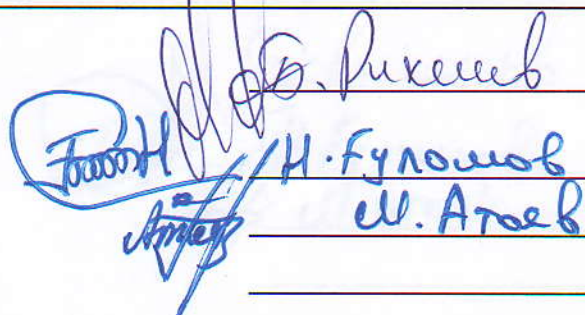 Б. Рихсиев
Н. Ғуломов
М. Атоев